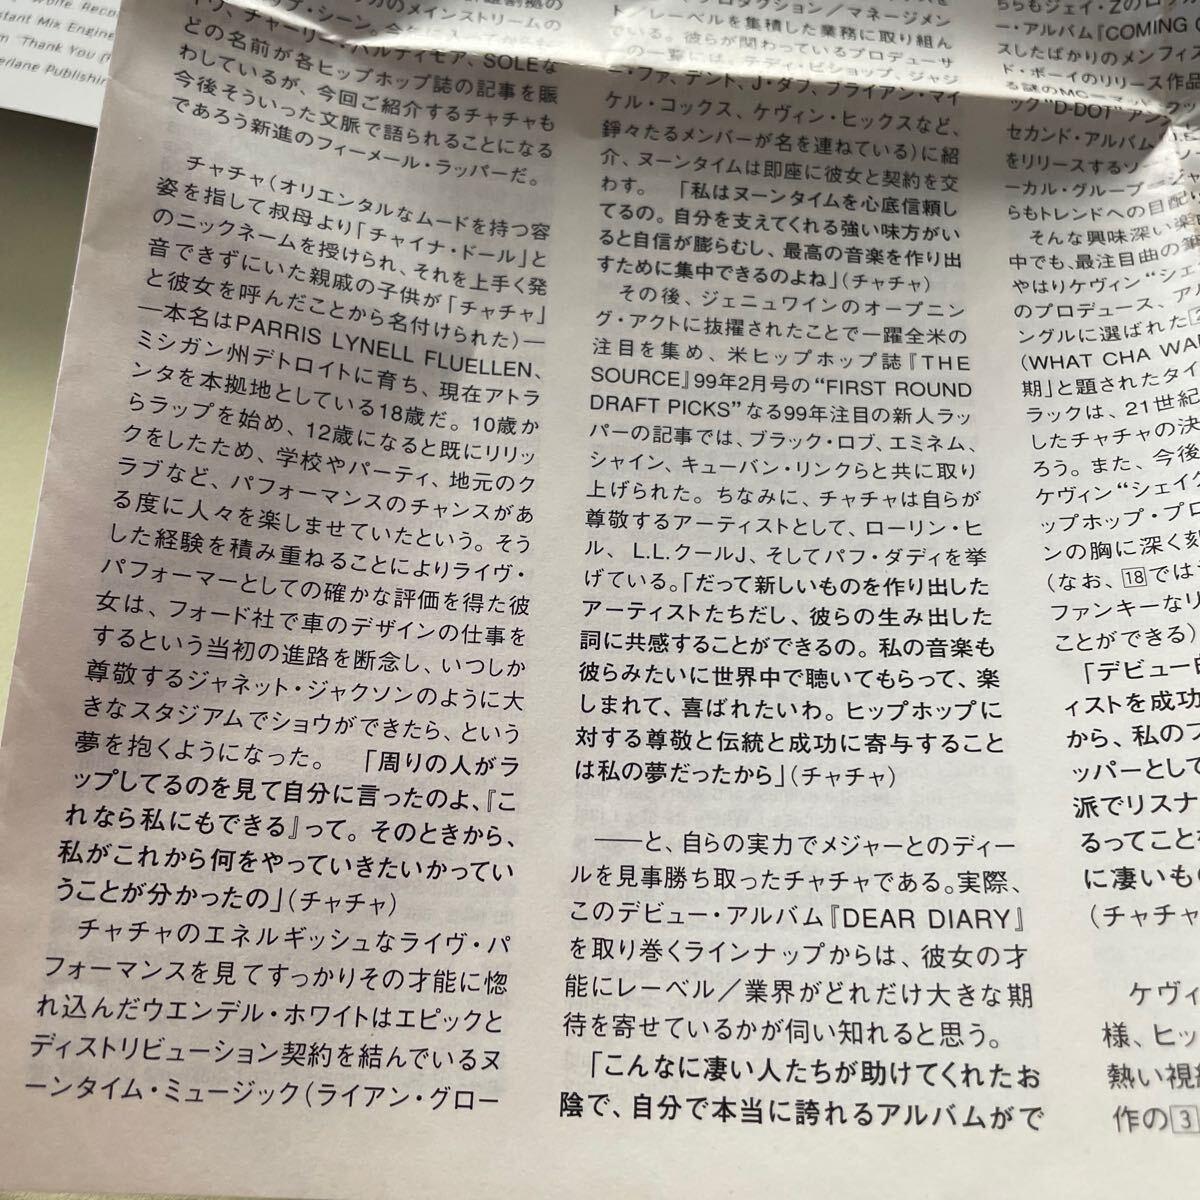 Wolfe Recor
stant Mix Engine
m Thank You (
erlane Publishin
のメインストリームの
ップ・シーン。
チャーリー・バルティモア、SOLEな
どの名前が各ヒップホップ誌の記事を賑
わしているが、今回ご紹介するチャチャも
今後そういった文脈で語られることになる
であろう新進のフィーメール・ラッパーだ。
チャチャ(オリエンタルなムードを持つ容
姿を指して叔母より「チャイナ・ドール」と
のニックネームを授けられ、それを上手く発
音できずにいた親戚の子供が「チャチャ」
と彼女を呼んだことから名付けられた)―
―本名はPARRIS LYNELL FLUELLEN、
ミシガン州デトロイトに育ち、現在アトラ
ンタを本拠地としている18歳だ。10歳か
らラップを始め、12歳になると既にリリッ
クをしたため、学校やパーティ、地元のク
ラブなど、パフォーマンスのチャンスがあ
る度に人々を楽しませていたという。そう
した経験を積み重ねることによりライヴ・
パフォーマーとしての確かな評価を得た彼
女は、フォード社で車のデザインの仕事を
するという当初の進路を断念し、いつしか
尊敬するジャネット・ジャクソンのように大
きなスタジアムでショウができたら、という
夢を抱くようになった。 「周りの人がラ
ップしてるのを見て自分に言ったのよ、『こ
れなら私にもできる』って。そのときから、
私がこれから何をやっていきたいかってい
うことが分かったの」(チャチャ)
チャチャのエネルギッシュなライヴ・パ
フォーマンスを見てすっかりその才能に惚
れ込んだウエンデル・ホワイトはエピックと
ディストリビューション契約を結んでいるヌ
ーンタイム・ミュージック(ライアン・グロー
プロダクション／マネージメン
ト／レーベルを集積した業務に取り組ん
でいる。彼らが関わっているプロデューサ
ーの一覧には、テディ・ビショップ、ジャジ
ー・ファ、デント、J・ダブ、ブライアン・マイ
ケル・コックス、ケヴィン・ヒックスなど、
錚々たるメンバーが名を連ねている)に紹
介、ヌーンタイムは即座に彼女と契約を交
わす。 「私はヌーンタイムを心底信頼し
てるの。自分を支えてくれる強い味方がい
ると自信が膨らむし、最高の音楽を作り出
すために集中できるのよね」(チャチャ)
その後、ジェニュワインのオープニン
グ・アクトに抜擢されたことで一躍全米の
注目を集め、米ヒップホップ誌『THE
SOURCE』99年2月号の“FIRST ROUND
DRAFT PICKS”なる99年注目の新人ラッ
パーの記事では、ブラック・ロブ、エミネム、
シャイン、キューバン・リンクらと共に取り
上げられた。ちなみに、チャチャは自らが
尊敬するアーティストとして、ローリン・ヒ
ル、L.L.クールJ、そしてパフ・ダディを挙
げている。「だって新しいものを作り出した
アーティストたちだし、彼らの生み出した
詞に共感することができるの。私の音楽も
彼らみたいに世界中で聴いてもらって、楽
しまれて、喜ばれたいわ。ヒップホップに
対する尊敬と伝統と成功に寄与すること
は私の夢だったから」(チャチャ)
――と、自らの実力でメジャーとのディー
ルを見事勝ち取ったチャチャである。実際、
このデビュー・アルバム『DEAR DIARY』
を取り巻くラインナップからは、彼女の才
能にレーベル／業界がどれだけ大きな期
待を寄せているかが伺い知れると思う。
「こんなに凄い人たちが助けてくれたお
陰で、自分で本当に誇れるアルバムがで
ちらもジェイ・Zの
ー・アルバム『COMING O
スしたばかりのメンフィ
ド・ボーイのリリース作品
る謎のMC
ック“D-DOT”アン
セカンド・アルバム
をリリースするソ
ーカル・グループ
らもトレンドへの目配り
そんな興味深い楽
中でも、最注目曲の筆
やはりケヴィン“シェ
のプロデュース、アル
ングルに選ばれた
(WHAT CHA WA
期」と題されたタイ
ラックは、21世紀
したチャチャの決
ろう。また、今後
ケヴィン“シェイク
ップホップ・プロ
ンの胸に深く刻
(なお、18では
ファンキーなリ
ことができる)
「デビュー
ィストを成功
から、私のフ
ッパーとして
派でリスナ
るってこと
に凄いも
(チャチャ
ケヴィ
様、ヒッ
熱い視
作の3